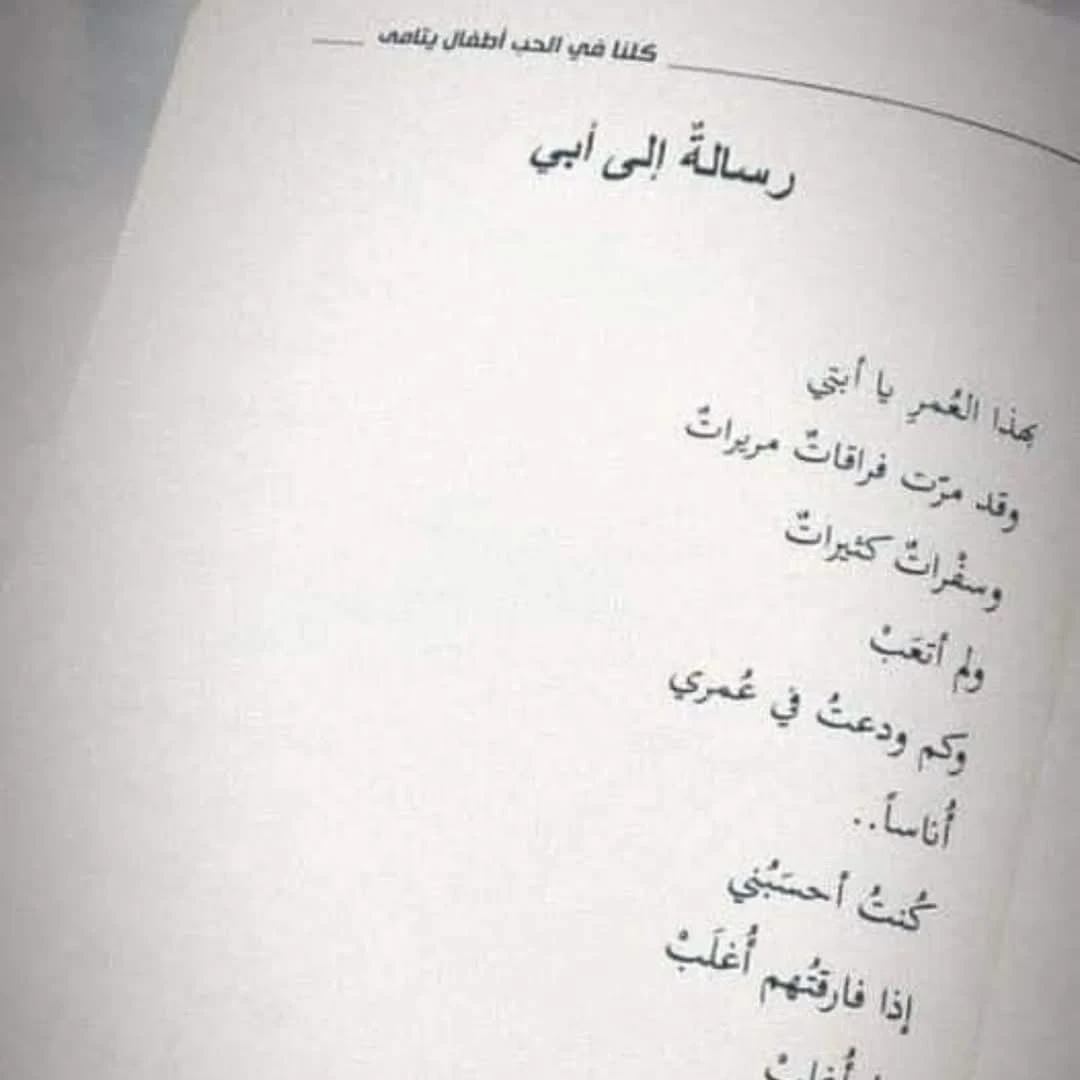 كلنا في الحب أطفال يتامى
رسالةٌ إلى أبي
بهذا العُمرِ يا أبتي
وقد مرّت فراقاتٌ مريراتٌ
وسفْراتٌ كثيراتٌ
ولم أتعَبْ
وكم ودعتُ في عُمري
أُناساً..
كُنتُ أحسَبُني
إذا فارقتُهم أُغلَبْ